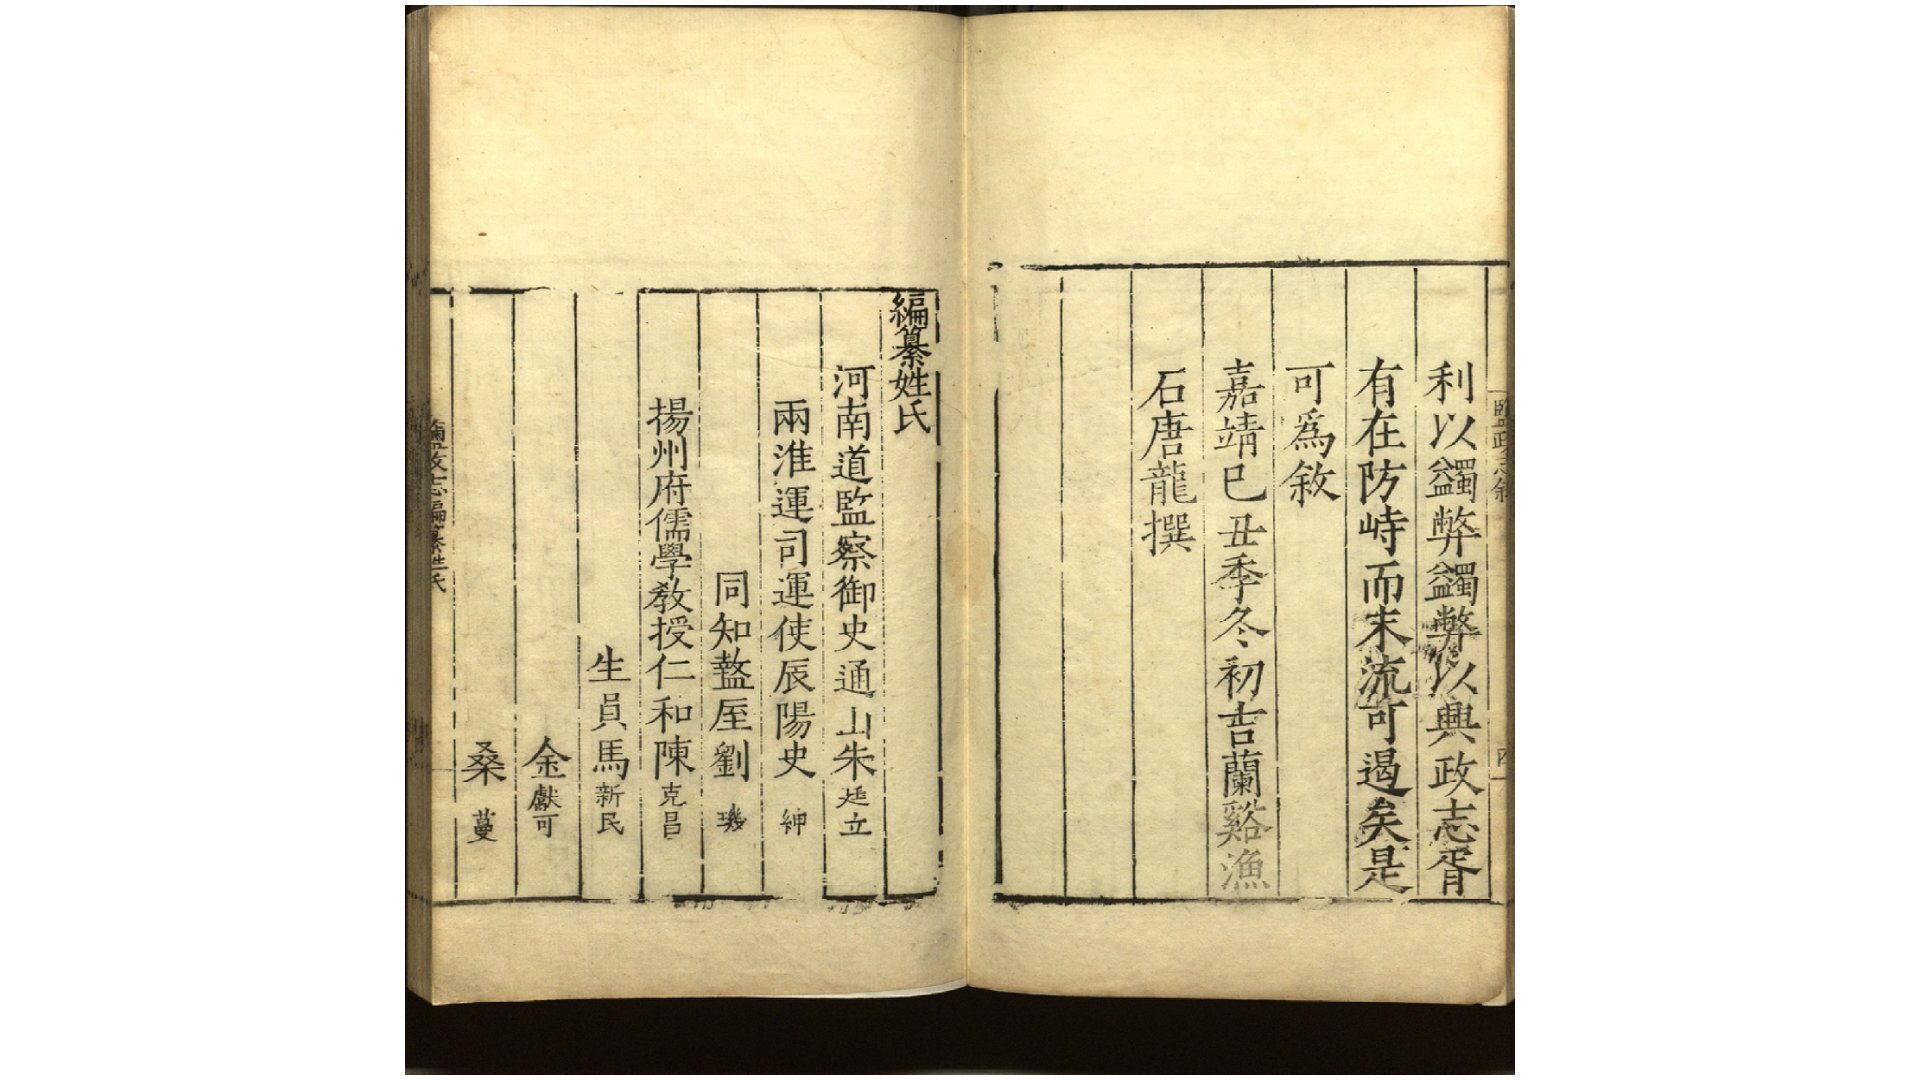 利以蠲弊蠲弊以興政志胥
有在防峙而末流可遏矣是
可為敘
嘉靖已丑季冬初吉蘭谿漁
石唐龍撰
編纂姓氏
河南道監察御史通山朱廷立
兩淮運司運使辰陽史紳
同知盩厔劉璣
揚州府儒學教授仁和陳克昌
生員馬新民
金獻可
桑蔓
鹽政志編纂姓氏